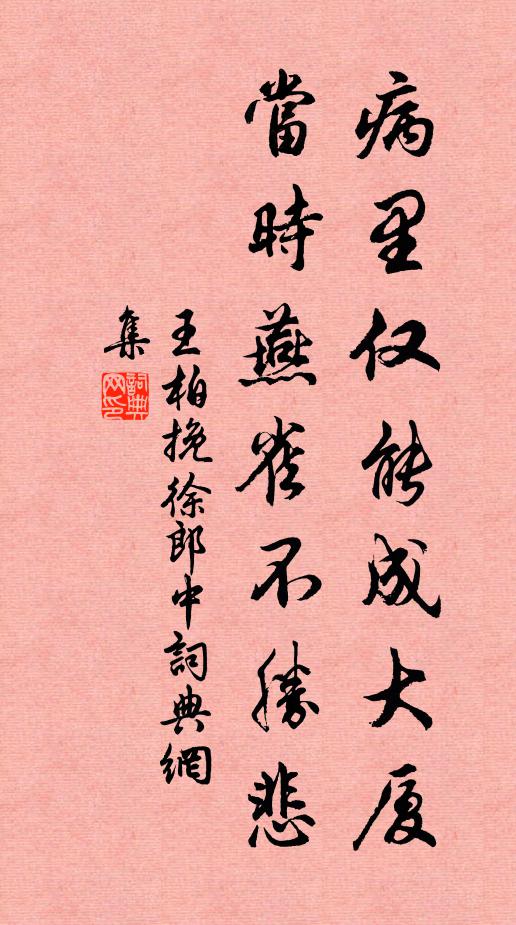 病里仅能成大厦
當時燕雀不勝悲
王柏挽徐郎中詞典網
集
詞典网印